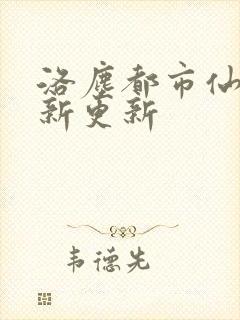 洛尘都市仙
新更新
韦德先